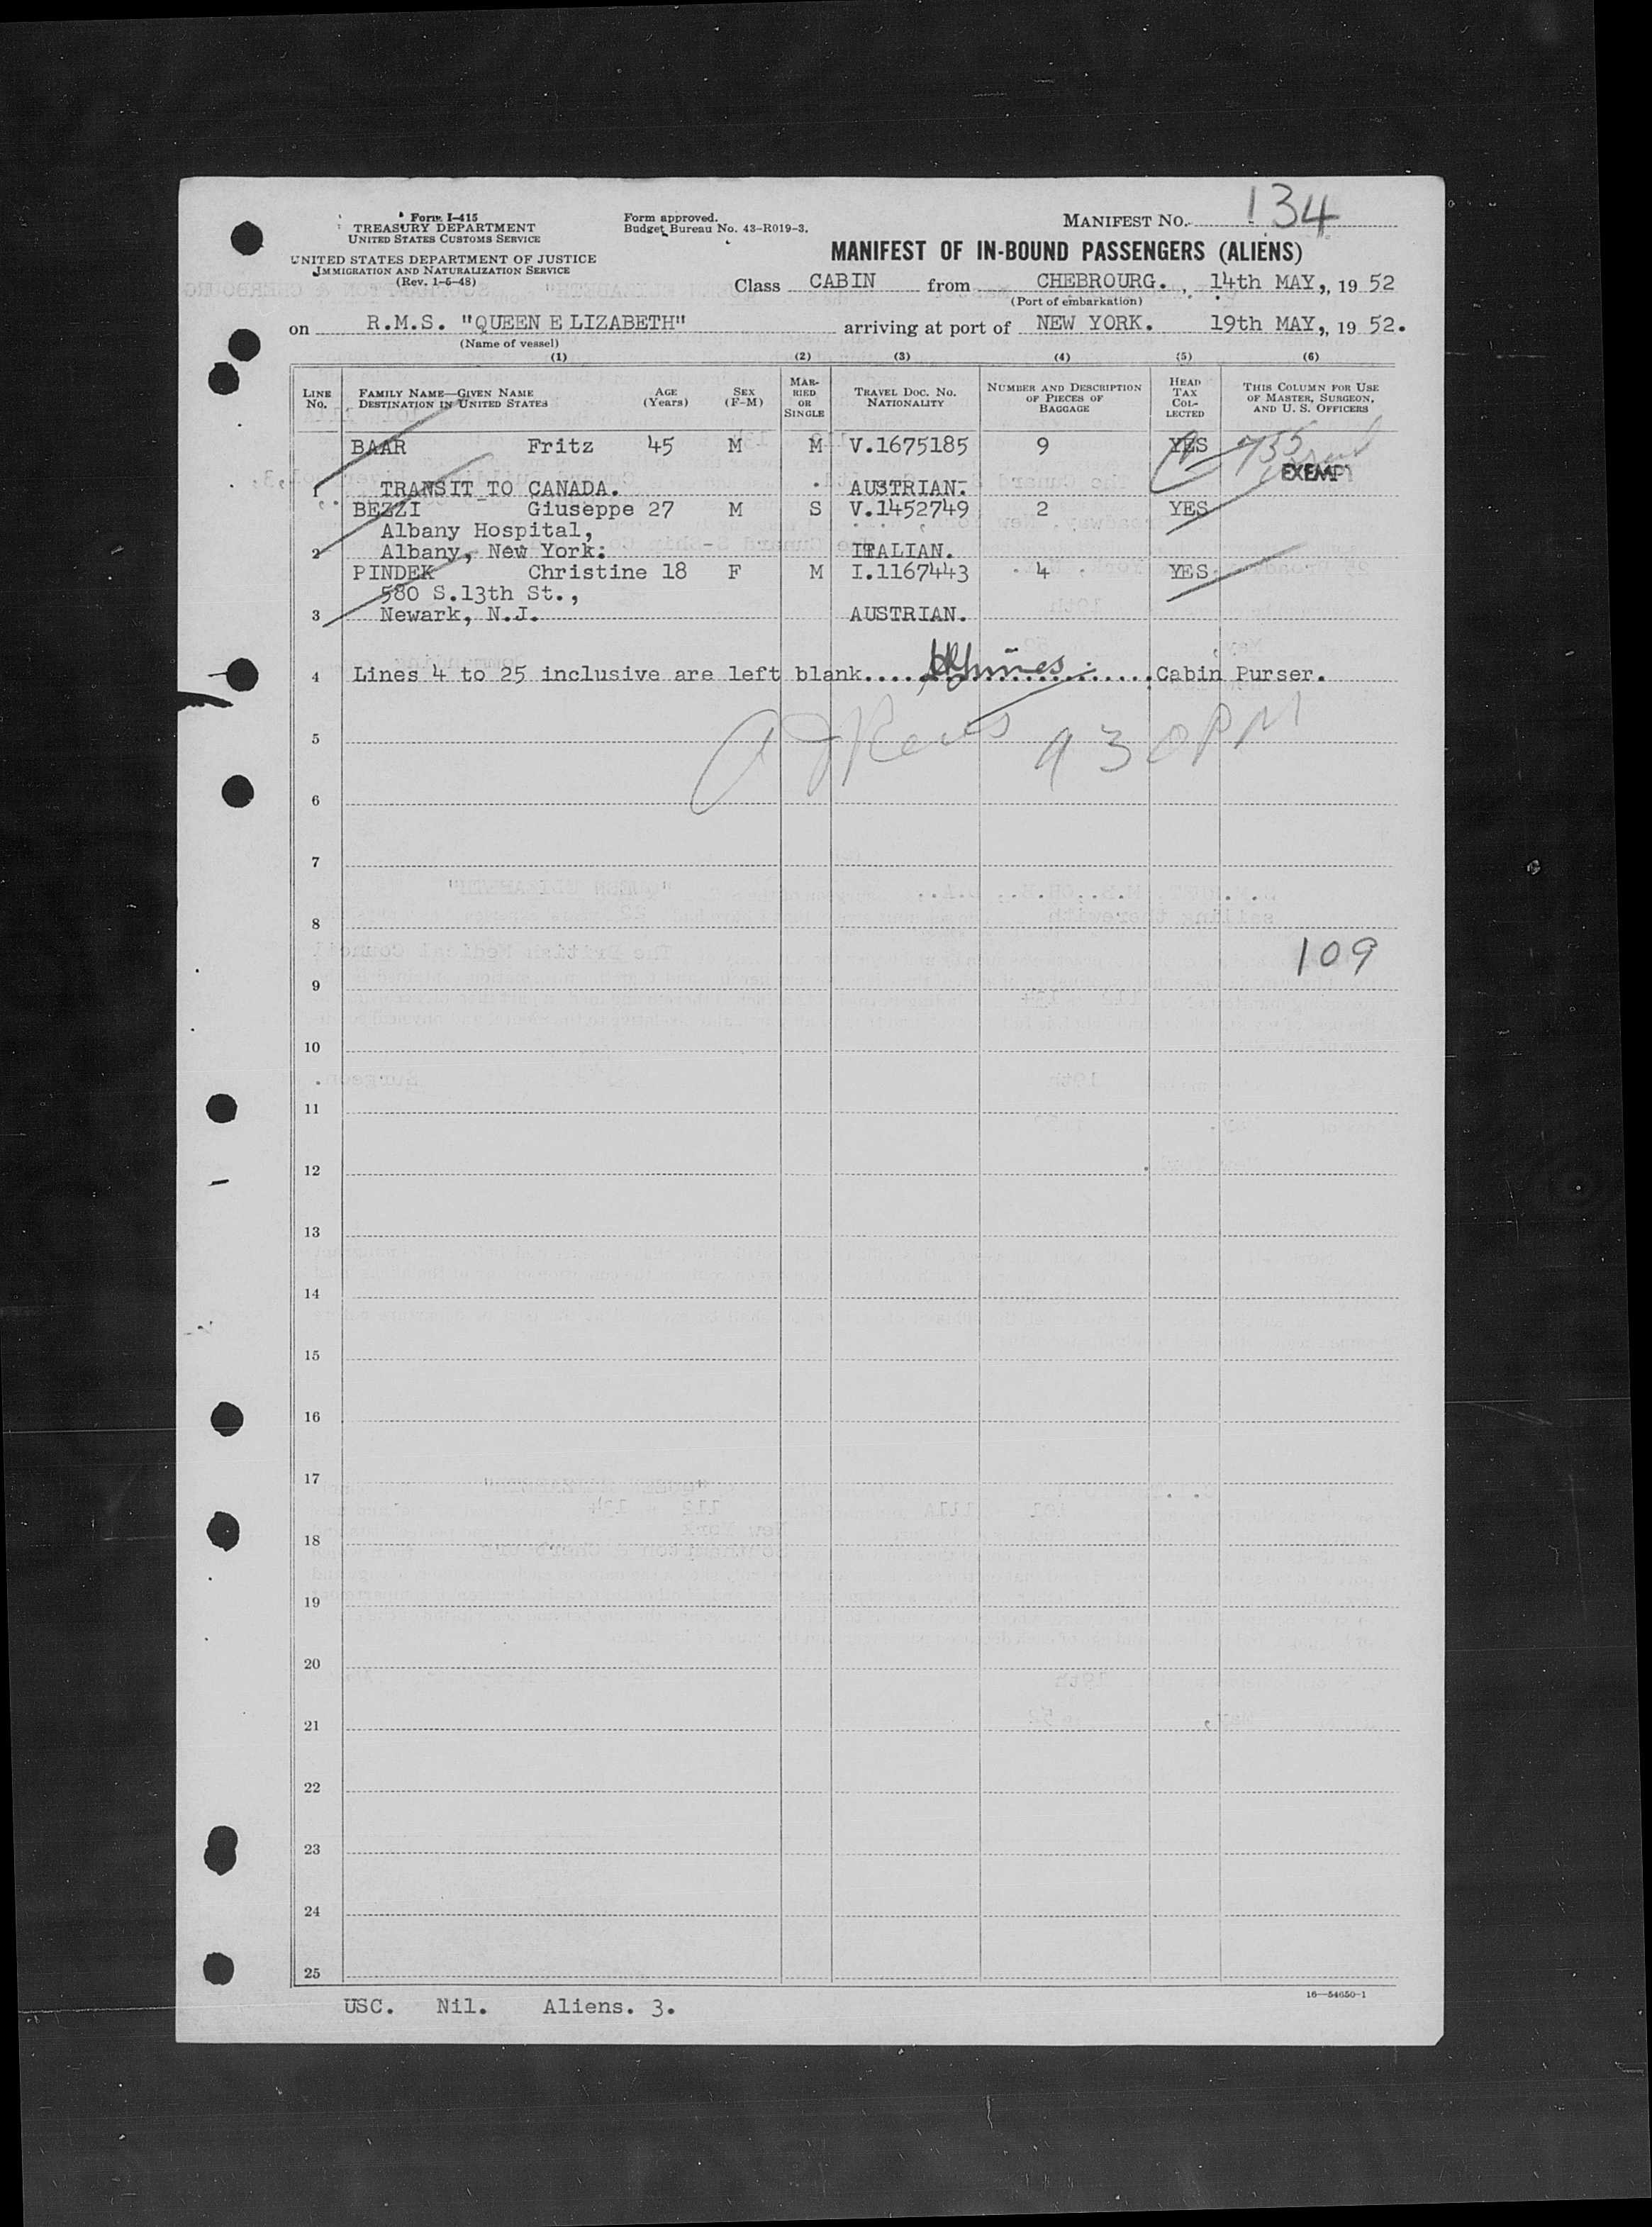 Form I-415
TREASURY DEPARTMENT
UNITED STATES CUSTOMS SERVICE
UNITED STATES DEPARTMENT OF JUSTICE
IMMIGRATION AND NATURALIZATION SERVICE
(Rev. 1-5-48)
Form approved.
Budget Bureau No. 43-R019-3.
MANIFEST NO. 134
MANIFEST OF IN-BOUND PASSENGERS (ALIENS)
Class CABIN from CHEBROURG. , 14th MAY, , 19 52
(Port of embarkation)
on R.M.S. "QUEEN E LIZABETH" arriving at port of NEW YORK. 19th MAY, , 19 52.
(Name of vessel)
(1) (2) (3) (4) (5) (6)
LINE No. FAMILY NAME—GIVEN NAME DESTINATION IN UNITED STATES AGE (Years) SEX (F-M) MARRIED OR SINGLE TRAVEL DOC. No. NATIONALITY NUMBER AND DESCRIPTION OF PIECES OF BAGGAGE HEAD TAX COLLECTED THIS COLUMN FOR USE OF MASTER, SURGEON, AND U. S. OFFICERS
BAAR Fritz 45 M M V.1675185 9 YES 755
EXEMPT
1 TRANSIT TO CANADA. AUSTRIAN.
BEZZI Giuseppe 27 M S V.1452749 2 YES
Albany Hospital,
2 Albany, New York. ITALIAN.
PINDEK Christine 18 F M I.1167443 4 YES
580 S.13th St.,
3 Newark, N.J. AUSTRIAN.
4 Lines 4 to 25 inclusive are left blank.............................Cabin Purser.
930PM
5
6
7
8
109
9
10
11
12
13
14
15
16
17
18
19
20
21
22
23
24
25
USC. Nil. Aliens. 3.
16—54650-1